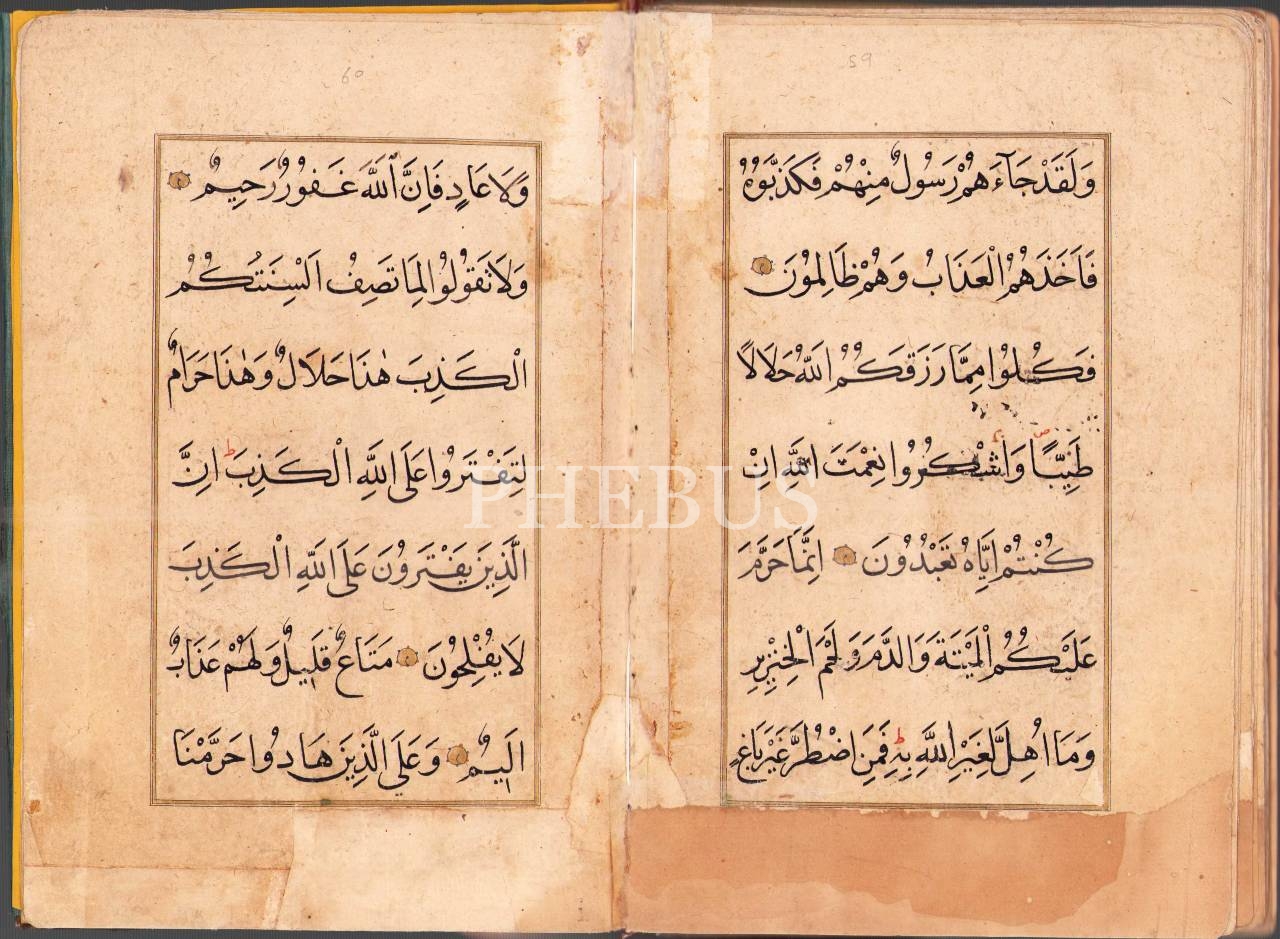 59
وَلَقَدْ جَآءَهُمْ رَسُولٌ مِنْهُمْ فَكَذَّبُوهُ
فَاَخَذَهُمُ الْعَذَابُ وَهُمْ ظَالِمُونَ
فَكُلُوا مِمَّا رَزَقَكُمُ اللّٰهُ حَلَالًا
طَيِّبًا وَاشْكُرُوا نِعْمَتَ اللّٰهِ اِنْ
كُنْتُمْ اِيَّاهُ تَعْبُدُونَ اِنَّمَا حَرَّمَ
عَلَيْكُمُ الْمَيْتَةَ وَالدَّمَ وَلَحْمَ الْخِنْزِيرِ
وَمَا اُهِلَّ لِغَيْرِ اللّٰهِ بِهِ فَمَنِ اضْطُرَّ غَيْرَ بَاغٍ
60
وَلَا عَادٍ فَاِنَّ اللّٰهَ غَفُورٌ رَحِيمٌ
وَلَا تَقُولُوا لِمَا تَصِفُ اَلْسِنَتُكُمُ
الْكَذِبَ هٰذَا حَلَالٌ وَهٰذَا حَرَامٌ
لِتَفْتَرُوا عَلَى اللّٰهِ الْكَذِبَ اِنَّ
الَّذِينَ يَفْتَرُونَ عَلَى اللّٰهِ الْكَذِبَ
لَا يُفْلِحُونَ مَتَاعٌ قَلِيلٌ وَلَهُمْ عَذَابٌ
اَلِيمٌ وَعَلَى الَّذِينَ هَادُوا حَرَّمْنَا
PHEBUS